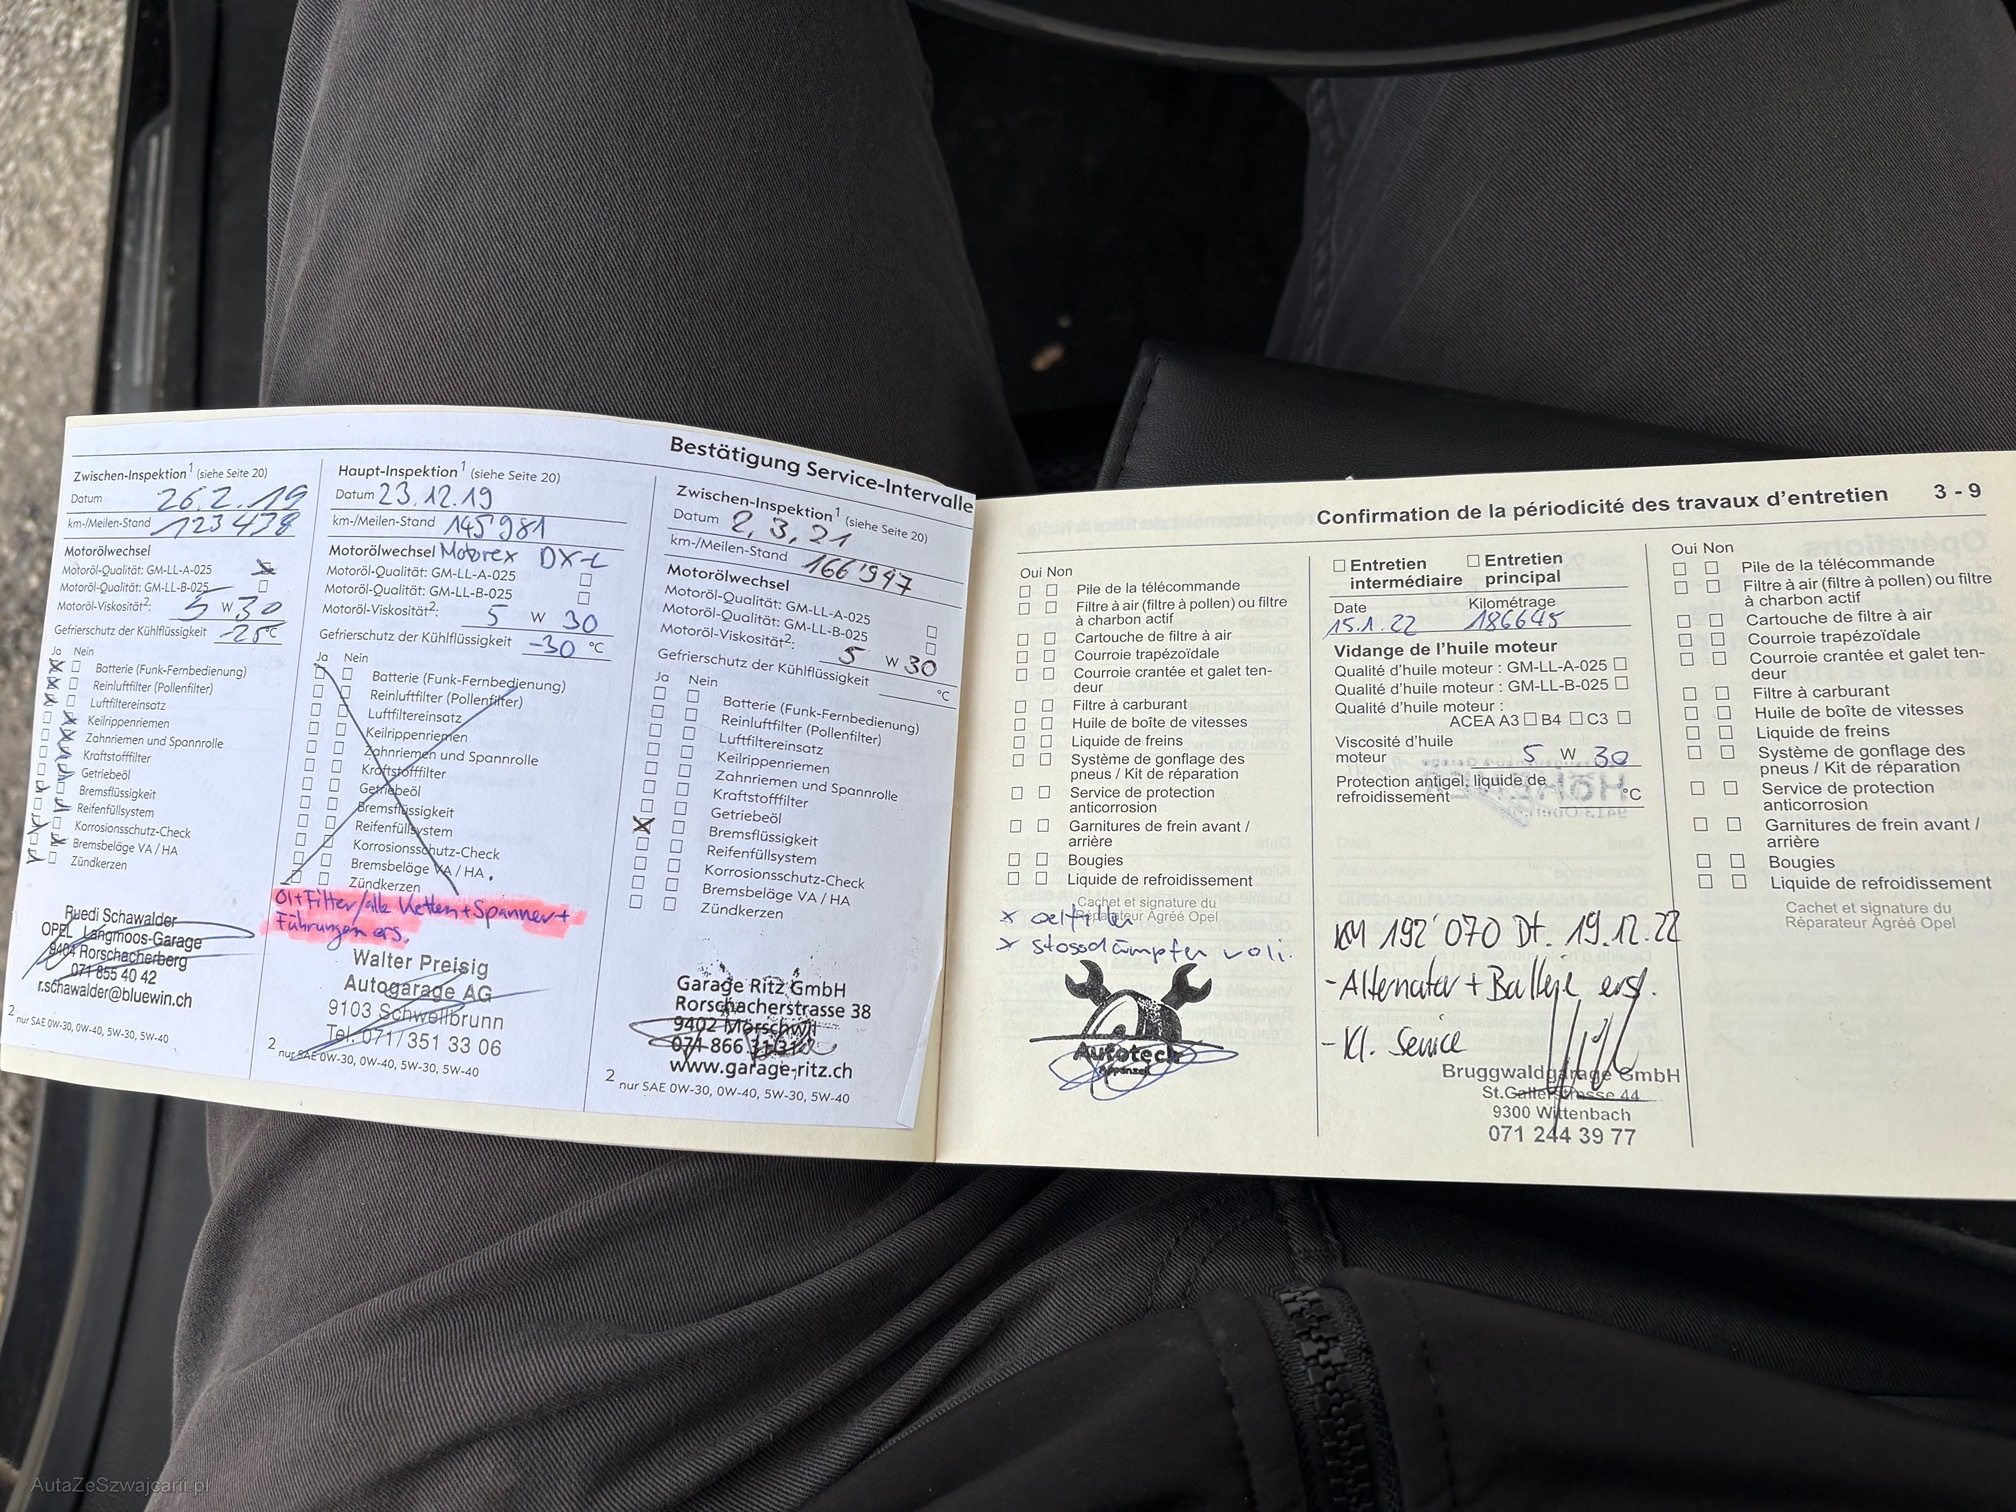 Bestätigung Service-Intervalle
Zwischen-Inspektion¹ (siehe Seite 20)
Datum 26.2.19
km-/Meilen-Stand 123438
Motorölwechsel
Motoröl-Qualität: GM-LL-A-025
Motoröl-Qualität: GM-LL-B-025
Motoröl-Viskosität²: 5 W 30
Gefrierschutz der Kühlflüssigkeit -25 °C
Ja Nein
Batterie (Funk-Fernbedienung)
Reinluftfilter (Pollenfilter)
Luftfiltereinsatz
Keilrippenriemen
Zahnriemen und Spannrolle
Kraftstofffilter
Getriebeöl
Bremsflüssigkeit
Reifenfüllsystem
Korrosionsschutz-Check
Bremsbeläge VA / HA
Zündkerzen
Ruedi Schawalder
OPEL Langmoos-Garage
9404 Rorschacherberg
071 855 40 42
r.schawalder@bluewin.ch
² nur SAE 0W-30, 0W-40, 5W-30, 5W-40
Haupt-Inspektion¹ (siehe Seite 20)
Datum 23.12.19
km-/Meilen-Stand 145981
Motorölwechsel Motorex DX-L
Motoröl-Qualität: GM-LL-A-025
Motoröl-Qualität: GM-LL-B-025
Motoröl-Viskosität²: 5 W 30
Gefrierschutz der Kühlflüssigkeit -30 °C
Ja Nein
Batterie (Funk-Fernbedienung)
Reinluftfilter (Pollenfilter)
Luftfiltereinsatz
Keilrippenriemen
Zahnriemen und Spannrolle
Kraftstofffilter
Getriebeöl
Bremsflüssigkeit
Reifenfüllsystem
Korrosionsschutz-Check
Bremsbeläge VA / HA
Zündkerzen
Öl+Filter/alle Ketten+Spanner+
Führungen ers.
Walter Preisig
Autogarage AG
9103 Schwellbrunn
Tel. 071/351 33 06
² nur SAE 0W-30, 0W-40, 5W-30, 5W-40
Zwischen-Inspektion¹ (siehe Seite 20)
Datum 2.3.21
km-/Meilen-Stand 166'947
Motorölwechsel
Motoröl-Qualität: GM-LL-A-025
Motoröl-Qualität: GM-LL-B-025
Motoröl-Viskosität²: 5 W 30
Gefrierschutz der Kühlflüssigkeit °C
Ja Nein
Batterie (Funk-Fernbedienung)
Reinluftfilter (Pollenfilter)
Luftfiltereinsatz
Keilrippenriemen
Zahnriemen und Spannrolle
Kraftstofffilter
Getriebeöl
Bremsflüssigkeit
Reifenfüllsystem
Korrosionsschutz-Check
Bremsbeläge VA / HA
Zündkerzen
Garage Ritz GmbH
Rorschacherstrasse 38
9402 Mörschwil
071 866 31 31
www.garage-ritz.ch
² nur SAE 0W-30, 0W-40, 5W-30, 5W-40
Confirmation de la périodicité des travaux d'entretien 3 - 9
Oui Non
Pile de la télécommande
Filtre à air (filtre à pollen) ou filtre
à charbon actif
Cartouche de filtre à air
Courroie trapézoïdale
Courroie crantée et galet ten-
deur
Filtre à carburant
Huile de boîte de vitesses
Liquide de freins
Système de gonflage des
pneus / Kit de réparation
Service de protection
anticorrosion
Garnitures de frein avant /
arrière
Bougies
Liquide de refroidissement
Cachet et signature du
Réparateur Agréé Opel
x oelfilter
x stossdämpfer
Autotech
Appenzell
Entretien intermédiaire
Entretien principal
Date Kilométrage
15.1.22 186645
Vidange de l'huile moteur
Qualité d'huile moteur : GM-LL-A-025
Qualité d'huile moteur : GM-LL-B-025
Qualité d'huile moteur :
ACEA A3 B4 C3
Viscosité d'huile
moteur 5 W 30
Protection antigel, liquide de
refroidissement °C
KM 192'070 Dt. 19.12.22
- Alternator + Batterie ers.
- Kl. Service
Bruggwaldgarage GmbH
St.Gallerstrasse 44
9300 Wittenbach
071 244 39 77
Oui Non
Pile de la télécommande
Filtre à air (filtre à pollen) ou filtre
à charbon actif
Cartouche de filtre à air
Courroie trapézoïdale
Courroie crantée et galet ten-
deur
Filtre à carburant
Huile de boîte de vitesses
Liquide de freins
Système de gonflage des
pneus / Kit de réparation
Service de protection
anticorrosion
Garnitures de frein avant /
arrière
Bougies
Liquide de refroidissement
Cachet et signature du
Réparateur Agréé Opel
AutaZeSzwajcarii.pl